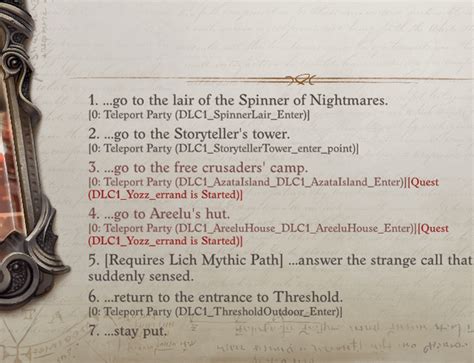 1. ...go to the lair of the Spinner of Nightmares.
[0: Teleport Party (DLC1_SpinnerLair_Enter)]
2. ...go to the Storyteller's tower.
[0: Teleport Party (DLC1_StorytellerTower_enter_point)]
3. ...go to the free crusaders' camp.
[0: Teleport Party (DLC1_AzataIsland_DLC1_AzataIsland_Enter)][Quest
(DLC1_Yozz_errand is Started)]
4. ...go to Areelu's hut.
[0: Teleport Party (DLC1_AreeluHouse_DLC1_AreeluHouse_Enter)][Quest
(DLC1_Yozz_errand is Started)]
5. [Requires Lich Mythic Path] ...answer the strange call that
suddenly sensed.
6. ...return to the entrance to Threshold.
[0: Teleport Party (DLC1_ThresholdOutdoor_Enter)]
7. ...stay put.